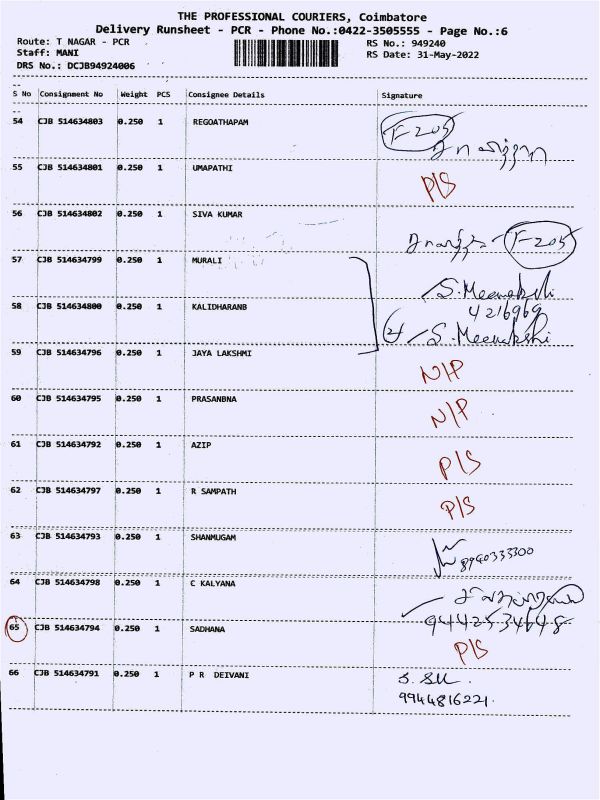 THE PROFESSIONAL COURIERS, Coimbatore
Delivery Runsheet - PCR - Phone No.:0422-3505555 - Page No.:6
Route: T NAGAR - PCR RS No.: 949240
Staff: MANI RS Date: 31-May-2022
DRS No.: DCJB94924006
--
S No Consignment No Weight PCS Consignee Details Signature
--
54 CJB 514634803 0.250 1 REGOATHAPAM F-205
55 CJB 514634801 0.250 1 UMAPATHI P/S
56 CJB 514634802 0.250 1 SIVA KUMAR F-205
57 CJB 514634799 0.250 1 MURALI S. Meenakshi
4216969
58 CJB 514634800 0.250 1 KALIDHARANB S. Meenakshi
59 CJB 514634796 0.250 1 JAYA LAKSHMI N/P
60 CJB 514634795 0.250 1 PRASANBNA N/P
61 CJB 514634792 0.250 1 AZIP P/S
62 CJB 514634797 0.250 1 R SAMPATH P/S
63 CJB 514634793 0.250 1 SHANMUGAM 8940333300
64 CJB 514634798 0.250 1 C KALYANA
9442534648
65 CJB 514634794 0.250 1 SADHANA P/S
66 CJB 514634791 0.250 1 P R DEIVANI
9944816221.